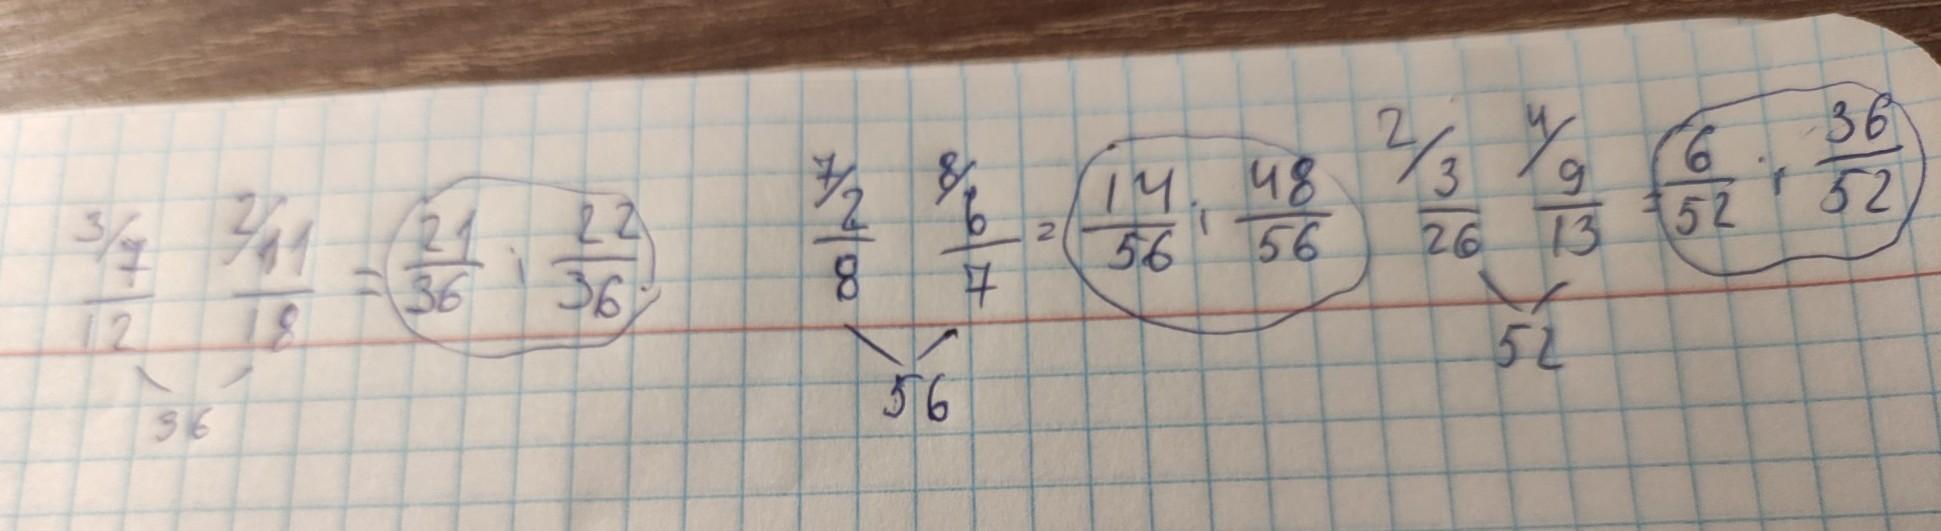 3/ 7/12 2/ 11/18 = 21/36 i 22/36
36
7/ 2/8 8/ 6/7 = 14/56 i 48/56
56
2/ 3/26 4/ 9/13 = 6/52 i 36/52
52